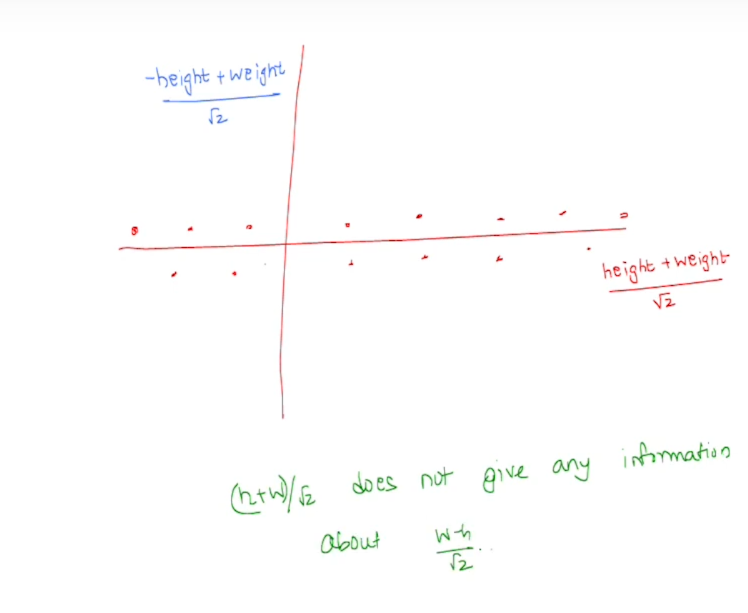 -height + weight
√2
height + weight
√2
(h+w)/√2 does not give any information
about w-h
√2 ..